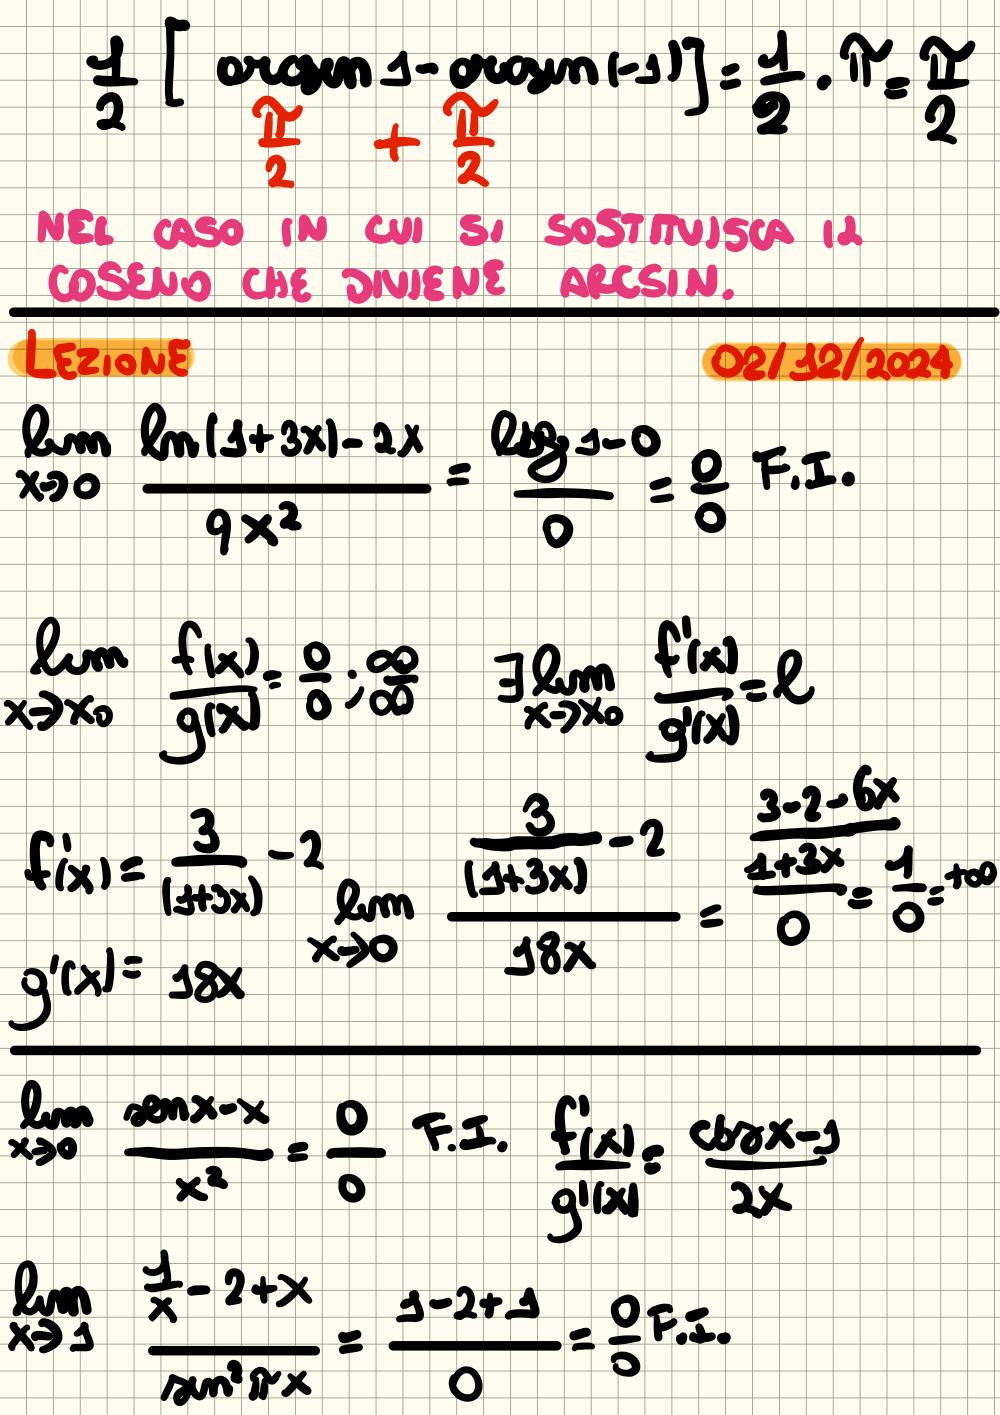 1/2 [ arcsin 1 - arcsin (-1) ] = 1/2 · π = π/2
π/2 + π/2
NEL CASO IN CUI SI SOSTITUISCA IL
COSENO CHE DIVIENE ARCSIN.
LEZIONE 02/12/2024
lim x→0 (ln(1+3x) - 2x)/(9x²) = (log 1 - 0)/0 = 0/0 F.I.
lim x→x₀ f(x)/g(x) = 0/0 ; ∞/∞ ∃ lim x→x₀ f'(x)/g'(x) = l
f'(x) = 3/(1+3x) - 2 lim x→0 (3/(1+3x) - 2)/(18x) = ((3-2-6x)/(1+3x))/0 = 1/0 = +∞
g'(x) = 18x
lim x→0 (sen x - x)/x² = 0/0 F.I. f'(x)/g'(x) = (cos x - 1)/(2x)
lim x→1 (1/x - 2 + x)/(sin² π x) = (1-2+1)/0 = 0/0 F.I.